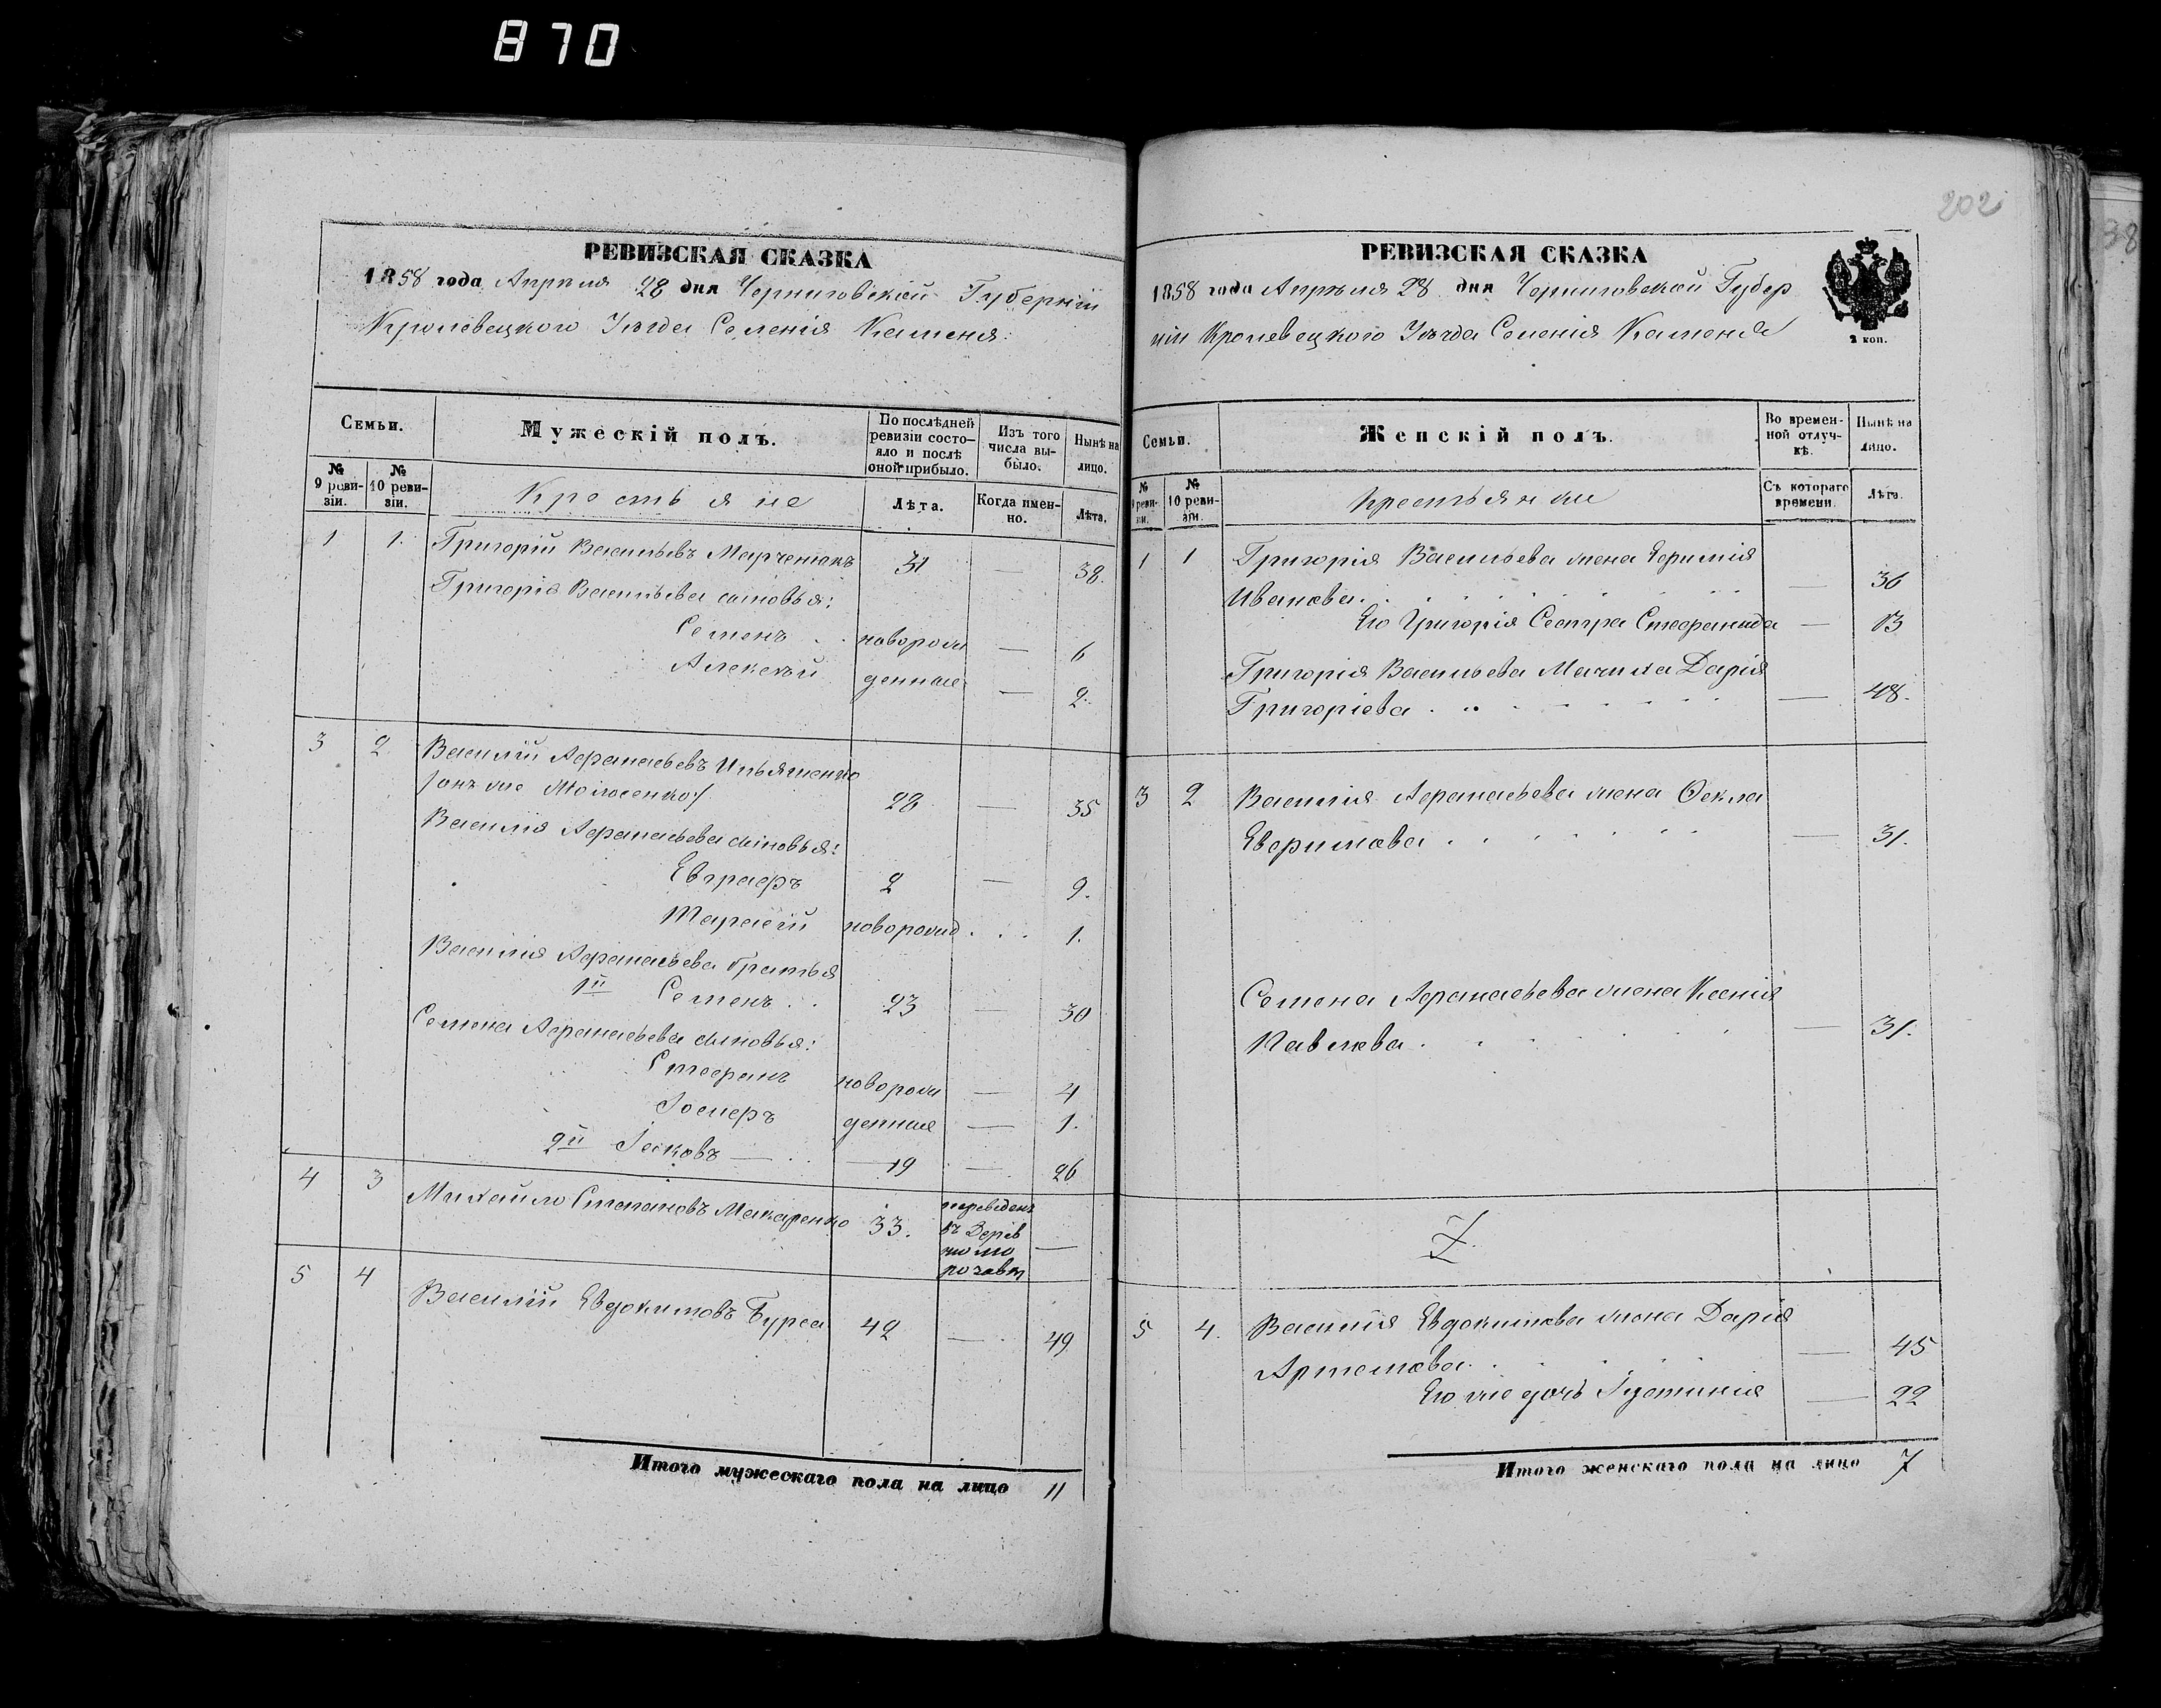 870
202
38
РЕВИЗСКАЯ СКАЗКА
1858 года Апрѣля 28 дня Черниговской Губерніи
Кролевецкого Уѣзда Селенія Каменя.
Семьи.
Мужескій полъ.
По послѣдней ревизіи состояло и послѣ оной прибыло.
Изъ того числа выбыло.
Нынѣ на лицо.
№ 9 ревизіи.
№ 10 ревизіи.
Крестьяне
Лѣта.
Когда именно.
Лѣта.
1 1. Григорій Васильевъ Марченокъ 31 — 38.
Григорія Васильева сыновья:
Семенъ . . новорож — 6
Алексѣй денные — 2.
3 2 Василій Афанасьевъ Ильяшенко
/онъ же Мойсеенко/ 28 — 35
Василія Афанасьева сыновья:
Евграфъ 2 — 9.
Тарасій новорожд . . . 1.
Василія Афанасьева братья
1й Семенъ . . 23 — 30
Семена Афанасьева сыновья:
Стефанъ новорож — 4
Іосифъ денные — 1.
2й Іесковъ — . . — 19 — 26
4 3 Михайло Степановъ Макаренко 33. переведенъ —
5 4 Василій Евдокимовъ Бурса 42 — 49
Итого мужескаго пола на лицо 11
РЕВИЗСКАЯ СКАЗКА
1858 года Апрѣля 28 дня Черниговской Губер
ніи Кролевецкого Уѣзда Селенія Каменя
2 коп.
Семьи.
Женскій полъ.
Во временной отлучкѣ.
Нынѣ на лицо.
№ 9 ревизіи.
№ 10 ревизіи.
Крестьянки
Съ котораго времени.
Лѣта.
1 1 Григорія Васильева жена Ефимія
Иванова . . . — 36
Его Григорія Сестра Стефанида — 13
Григорія Васильева Мачиха Дарія
Григоріева . . . — 48.
3 2 Василія Афанасьева жена Ѳекла
Евфимова . . . — 31.
Семена Афанасьева жена Ксенія
Павлова . . . — 31.
Z
5 4. Василія Евдокимова жена Дарія
Артемова . . . — 45
Его же дочь Іустинія — 22
Итого женскаго пола на лицо 7